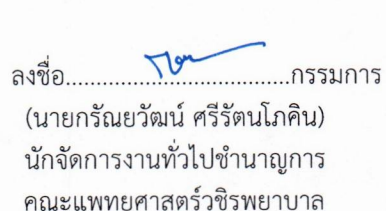 ลงชื่อ....................................กรรมการ
(นายกรัณยวัฒน์ ศรีรัตนโภคิน)
นักจัดการงานทั่วไปชำนาญการ
คณะแพทยศาสตร์วชิรพยาบาล